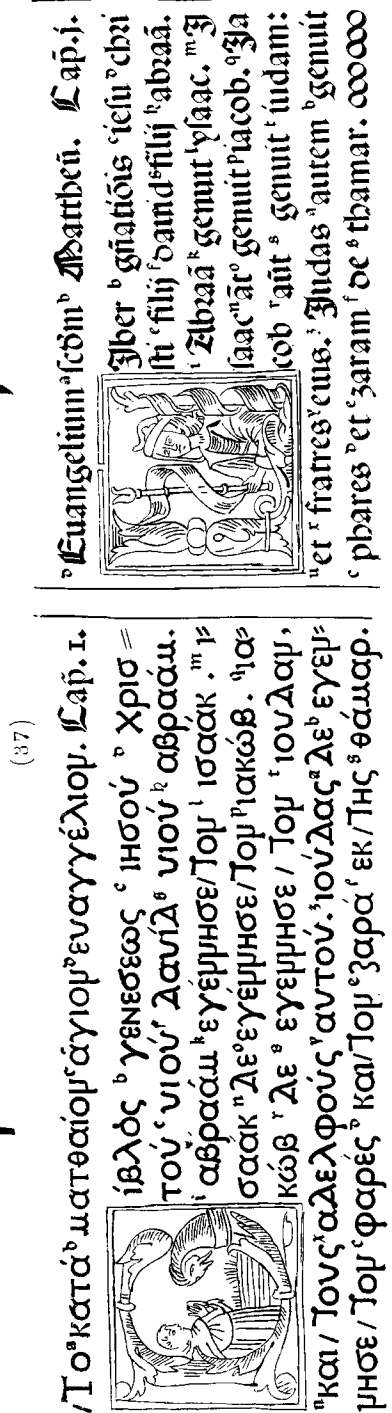 (37)
Το ᵃκατά ᵇματθαίον ᶜάγιον ᵈευαγγέλιον. Cap̄. 1.
ίβλός ᵇγενεσεως ᶜιησού ᵈχρισ=
τού ᵉυιού ᶠδαυίδ ᵍυιού ʰαβραάμ.
ⁱαβραάμ ᵏεγέννησε/τον ˡισαάκ. ᵐι=
σαάκ ⁿδε ᵒεγέννησε/τον ᵖιακώβ. ᑫια=
κώβ ʳδε ˢεγεννησε/τον ᵗιουδαν,
ᵘκαι/τους ˣαδελφούς ʸαυτού. ᶻιούδας ᵃδε ᵇεγεν=
νησε/τον ᶜφαρές ᵈκαι/τον ᵉζαρά ᶠεκ/της ᵍθάμαρ.
Euangelium ᵃscd̄m ᵇMattheū. Cap̄. j.
Iber ᵇgn̄atiōis ᶜiesu ᵈchri
sti ᵉfilij ᶠdauid ᵍfilij ʰabraā.
ⁱAbraā ᵏgenuit ˡysaac. ᵐI
saac ⁿāt ᵒgenuit ᵖiacob. ᑫIa
cob ʳaūt ˢgenuit ᵗiudam:
ᵘet ˣfratres ʸeius. ᶻIudas ᵃautem ᵇgenuit
ᶜphares ᵈet ᵉzaram ᶠde ᵍthamar.